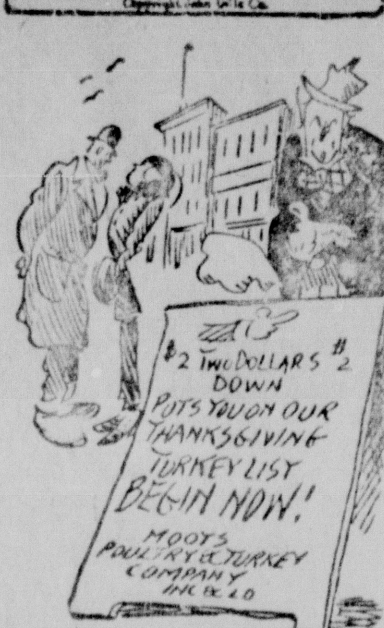 Copyright John Wile Co.
$2 TWO DOLLARS $2
DOWN
PUTS YOU ON OUR
THANKSGIVING
TURKEY LIST
BEGIN NOW!
MOOTS
POULTRY & TURKEY
COMPANY
INC & LD